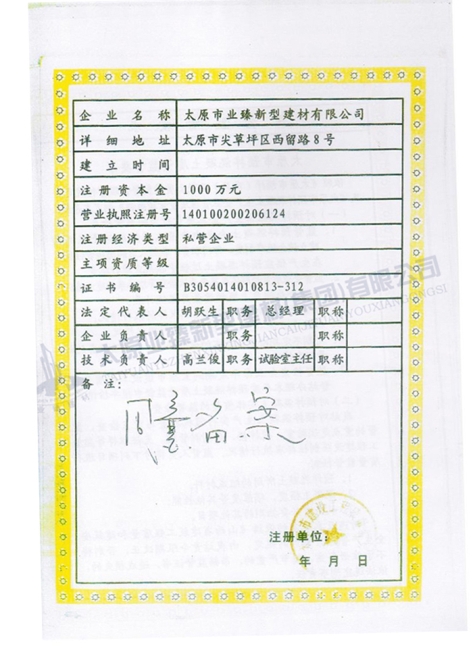 企业名称 太原市业臻新型建材有限公司
详细地址 太原市尖草坪区西留路8号
建立时间
注册资本金 1000万元
营业执照注册号 140100200206124
注册经济类型 私营企业
主项资质等级
证书编号 B3054014010813-312
法定代表人 胡跃生 职务 总经理 职称
企业负责人 职务 职称
技术负责人 高兰俊 职务 试验室主任 职称
备注：
同意备案
注册单位：
年 月 日